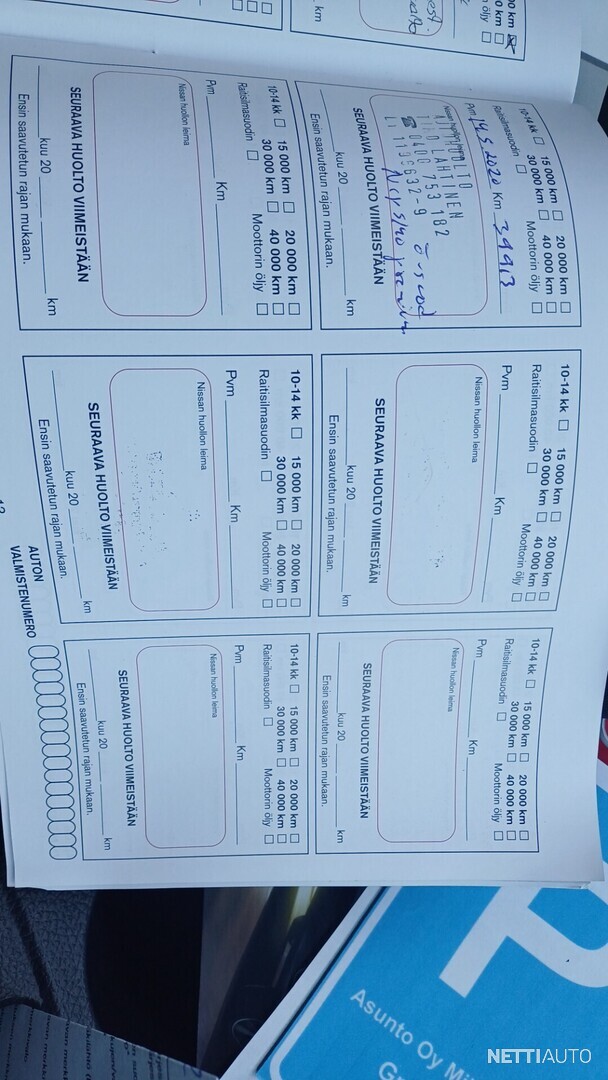 10-14 kk 15 000 km 20 000 km
30 000 km 40 000 km
Raitisilmasuodin Moottorin öljy
Pvm 14.5.2020 Km 39913
Nissan huollon leima
0400 753 182
LY 1139632-9
SEURAAVA HUOLTO VIIMEISTÄÄN
kuu 20 km
Ensin saavutetun rajan mukaan.
10-14 kk 15 000 km 20 000 km
30 000 km 40 000 km
Raitisilmasuodin Moottorin öljy
Pvm Km
Nissan huollon leima
SEURAAVA HUOLTO VIIMEISTÄÄN
kuu 20 km
Ensin saavutetun rajan mukaan.
10-14 kk 15 000 km 20 000 km
30 000 km 40 000 km
Raitisilmasuodin Moottorin öljy
Pvm Km
Nissan huollon leima
SEURAAVA HUOLTO VIIMEISTÄÄN
kuu 20 km
Ensin saavutetun rajan mukaan.
10-14 kk 15 000 km 20 000 km
30 000 km 40 000 km
Raitisilmasuodin Moottorin öljy
Pvm Km
Nissan huollon leima
SEURAAVA HUOLTO VIIMEISTÄÄN
kuu 20 km
Ensin saavutetun rajan mukaan.
10-14 kk 15 000 km 20 000 km
30 000 km 40 000 km
Raitisilmasuodin Moottorin öljy
Pvm Km
Nissan huollon leima
SEURAAVA HUOLTO VIIMEISTÄÄN
kuu 20 km
Ensin saavutetun rajan mukaan.
10-14 kk 15 000 km 20 000 km
30 000 km 40 000 km
Raitisilmasuodin Moottorin öljy
Pvm Km
Nissan huollon leima
SEURAAVA HUOLTO VIIMEISTÄÄN
kuu 20 km
Ensin saavutetun rajan mukaan.
AUTON
VALMISTENUMERO
P
Asunto Oy
NETTIAUTO